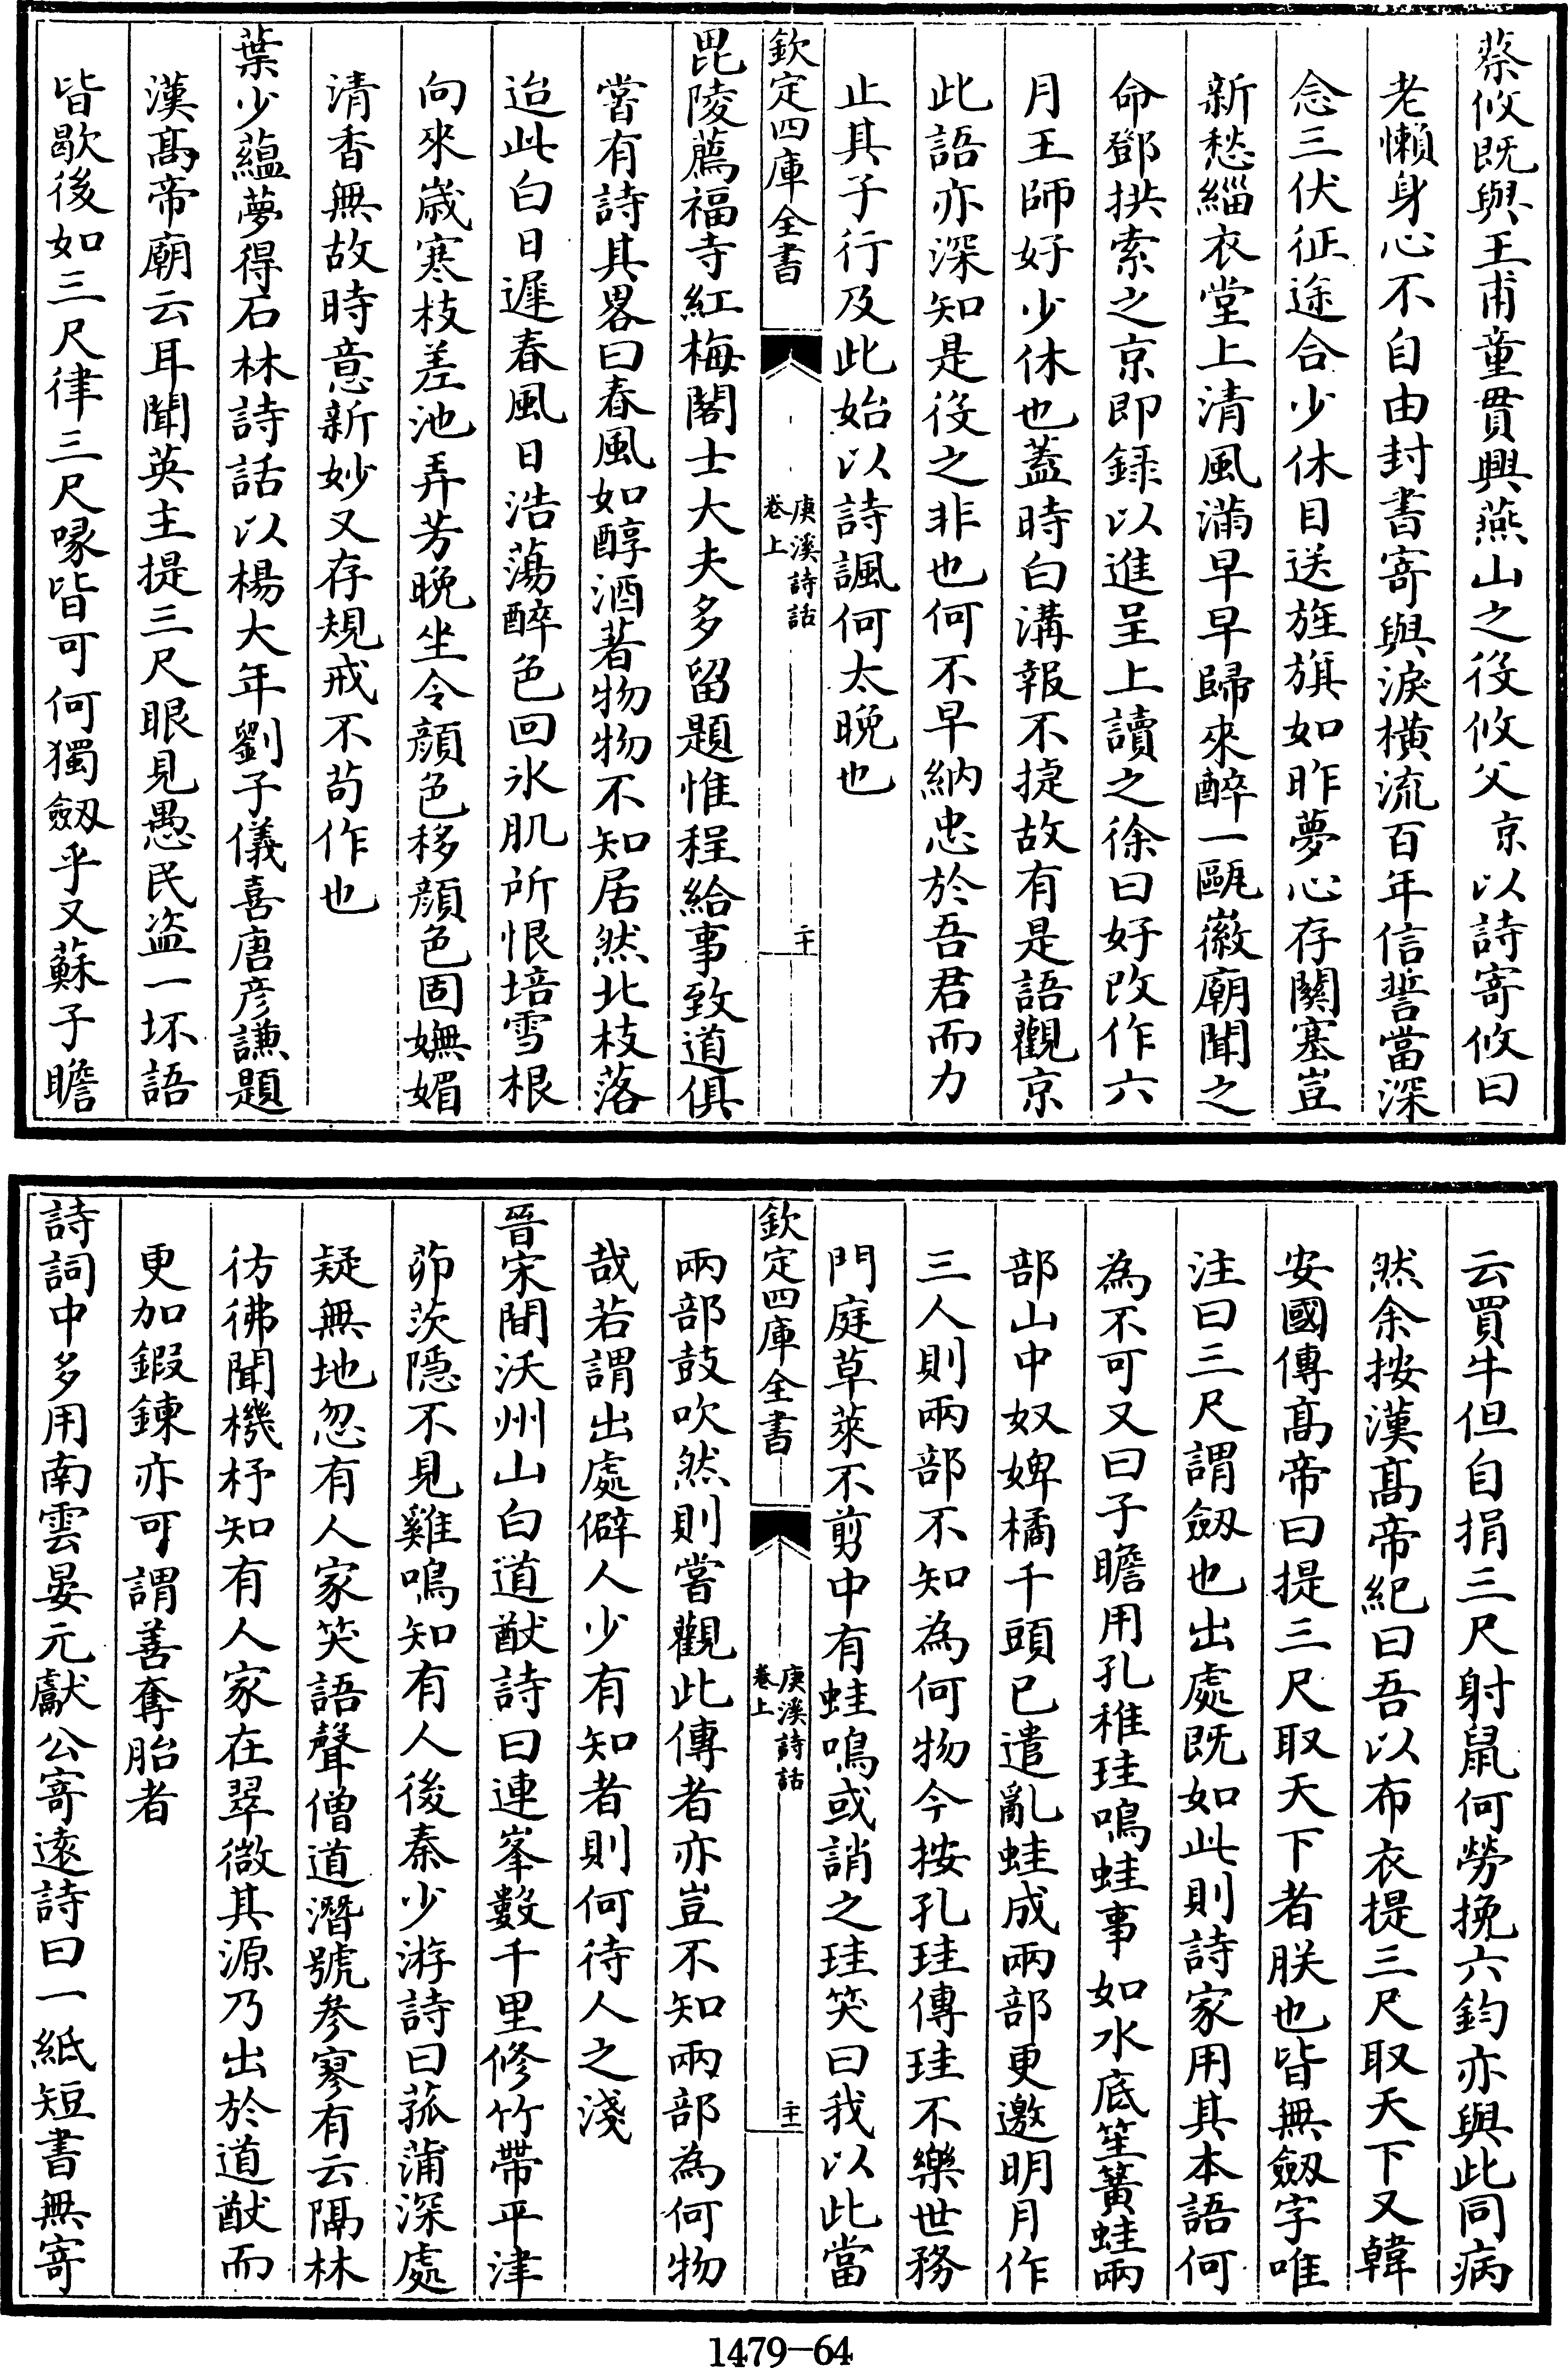 蔡攸既與王甫童貫興燕山之役攸父京以詩寄攸曰
老懶身心不自由封書寄與淚橫流百年信誓當深
念三伏征途合少休目送旌旗如昨夢心存關塞豈
新愁緇衣堂上清風滿早早歸來醉一甌徽廟聞之
命鄧拱索之京即録以進呈上讀之徐曰好改作六
月王師好少休也蓋時白溝報不㨗故有是語觀京
此語亦深知是役之非也何不早納忠於吾君而力
止其子行及此始以詩諷何太晚也
欽定四庫全書
庚溪詩話
卷上
二十
毘陵薦福寺紅梅閣士大夫多留題惟程給事致道俱
嘗有詩其畧曰春風如醇酒著物物不知居然北枝落
迨此白日遲春風日浩蕩醉色回氷肌所恨培雪根
向來嵗寒枝差池弄芳晚坐令顔色移顔色固嫵媚
清香無故時意新妙又存規戒不苟作也
葉少蘊夢得石林詩話以楊大年劉子儀喜唐彦謙題
漢髙帝廟云耳聞英主提三尺眼見愚民盜一坏語
皆歇後如三尺律三尺喙皆可何獨劔乎又蘇子瞻
云買牛但自捐三尺射鼠何勞挽六鈞亦與此同病
然余按漢髙帝紀曰吾以布衣提三尺取天下又韓
安國傳髙帝曰提三尺取天下者朕也皆無劔字唯
注曰三尺謂劔也出處既如此則詩家用其本語何
為不可又曰子瞻用孔稚珪鳴蛙事如水底笙簧蛙兩
部山中奴婢橘千頭已遣亂蛙成兩部更邀明月作
三人則兩部不知為何物今按孔珪傳珪不樂世務
門庭草萊不剪中有蛙鳴或誚之珪笑曰我以此當
欽定四庫全書
庚溪詩話
卷上
二十一
兩部鼓吹然則嘗觀此傳者亦豈不知兩部為何物
哉若謂出處僻人少有知者則何待人之淺
晉宋間沃州山白道猷詩曰連峯數千里修竹帶平津
茆茨隠不見雞鳴知有人後秦少游詩曰菰蒲深處
疑無地忽有人家笑語聲僧道潛號參寥有云隔林
彷彿聞機杼知有人家在翠微其源乃出於道猷而
更加鍜鍊亦可謂善奪胎者
詩詞中多用南雲晏元獻公寄逺詩曰一紙短書無寄
1479-64